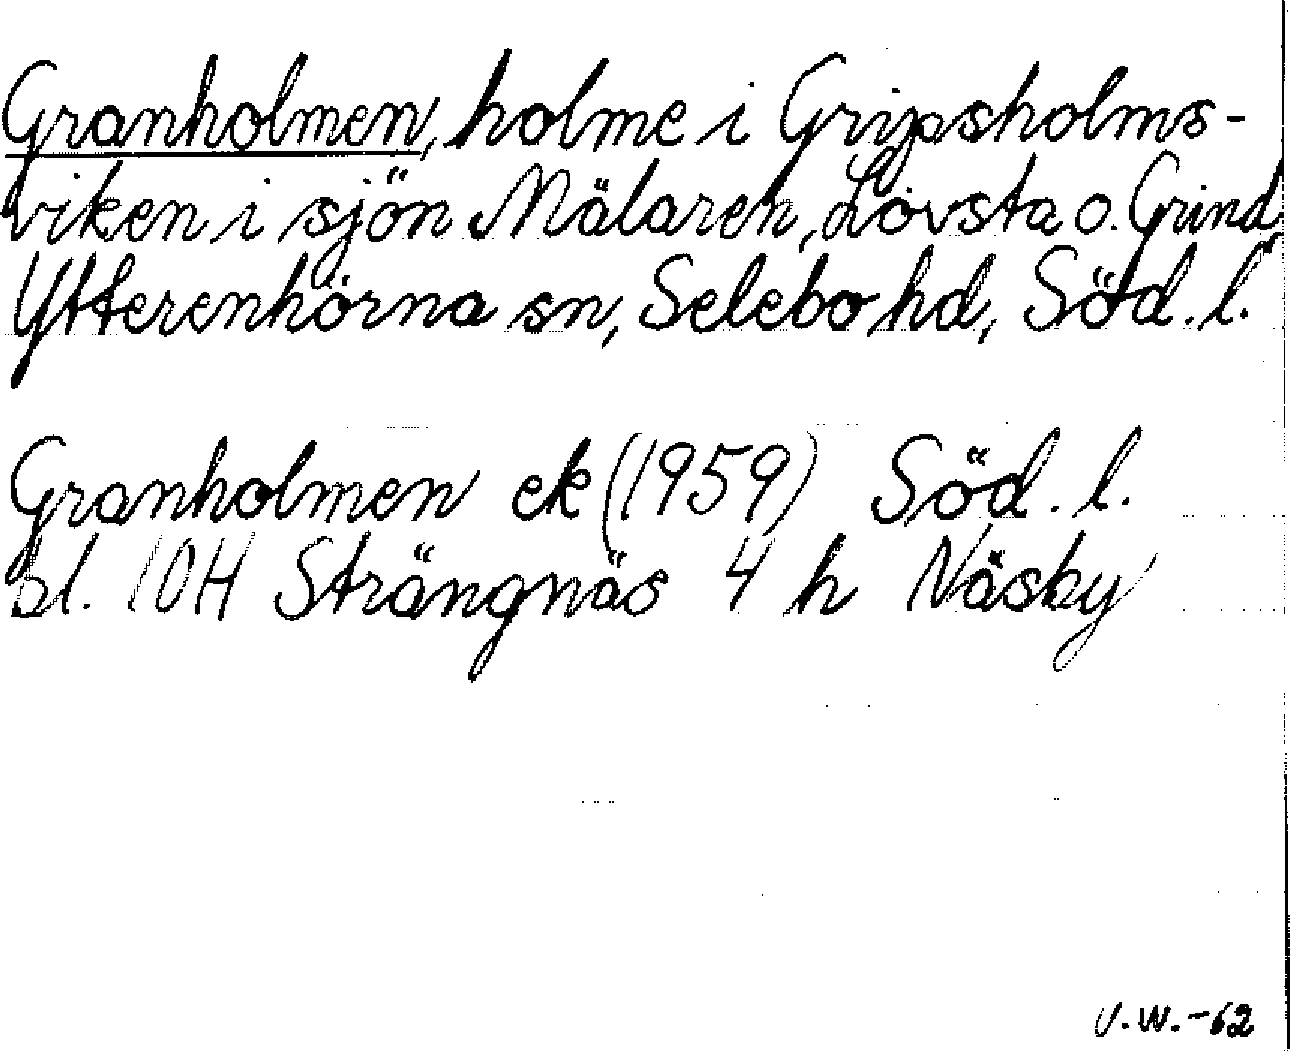 Granholmen, holme i Gripsholms-
viken i sjön Mälaren, Lövsta o. Grind,
Ytterenhörna sn, Selebo hd, Söd. l.
Granholmen ek (1959) Söd. l.
bl. 10H Strängnäs 4 h Näsby
V.W.-62